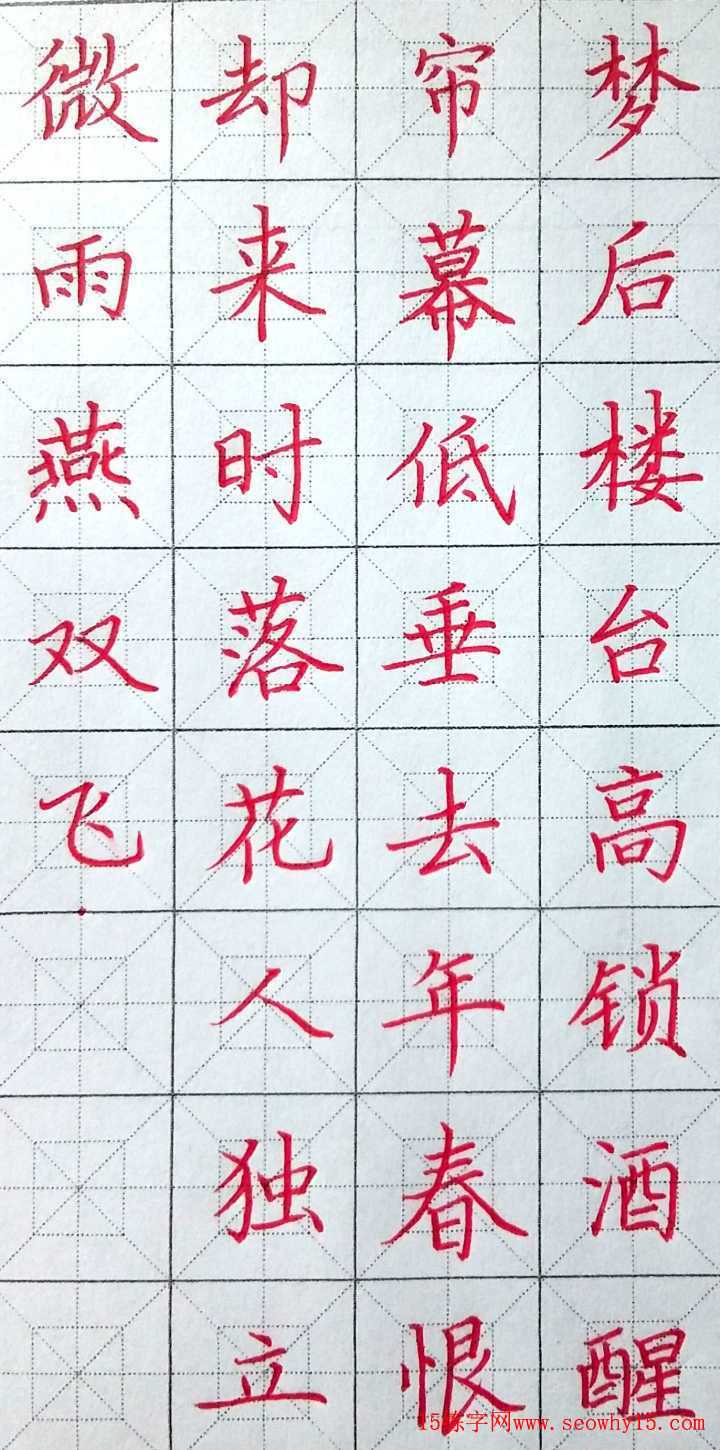 梦后楼台高锁酒醒
帘幕低垂去年春恨
却来时落花人独立
微雨燕双飞
15练字网www.seowhy15.com